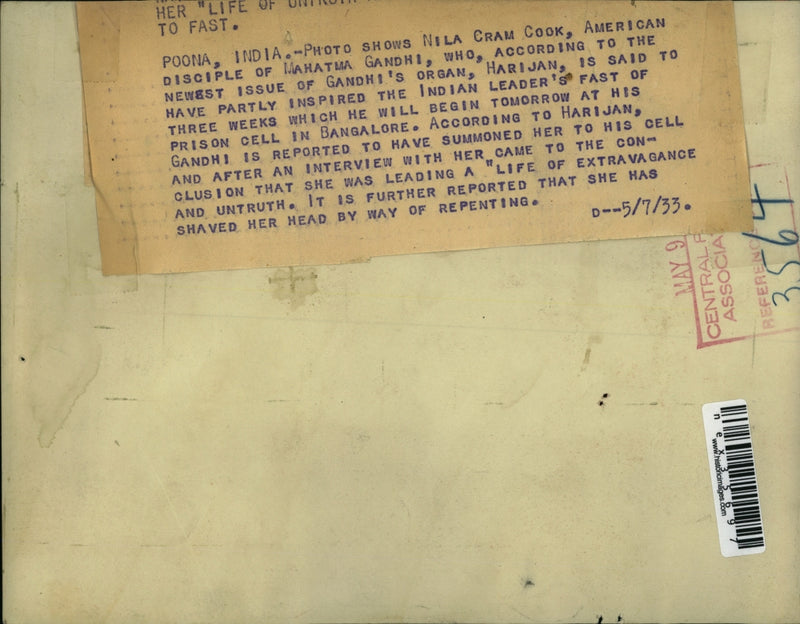 HER "LIFE OF UNTRUTH
TO FAST.
POONA, INDIA.-PHOTO SHOWS NILA CRAM COOK, AMERICAN
DISCIPLE OF MAHATMA GANDHI, WHO, ACCORDING TO THE
NEWEST ISSUE OF GANDHI'S ORGAN, HARIJAN, IS SAID TO
HAVE PARTLY INSPIRED THE INDIAN LEADER'S FAST OF
THREE WEEKS WHICH HE WILL BEGIN TOMORROW AT HIS
PRISON CELL IN BANGALORE. ACCORDING TO HARIJAN,
GANDHI IS REPORTED TO HAVE SUMMONED HER TO HIS CELL
AND AFTER AN INTERVIEW WITH HER CAME TO THE CON-
CLUSION THAT SHE WAS LEADING A "LIFE OF EXTRAVAGANCE
AND UNTRUTH. IT IS FURTHER REPORTED THAT SHE HAS
SHAVED HER HEAD BY WAY OF REPENTING.
D--5/7/33.
MAY 9
CENTRAL
ASSOCIA
REFERENC
3564
www.historicimages.com